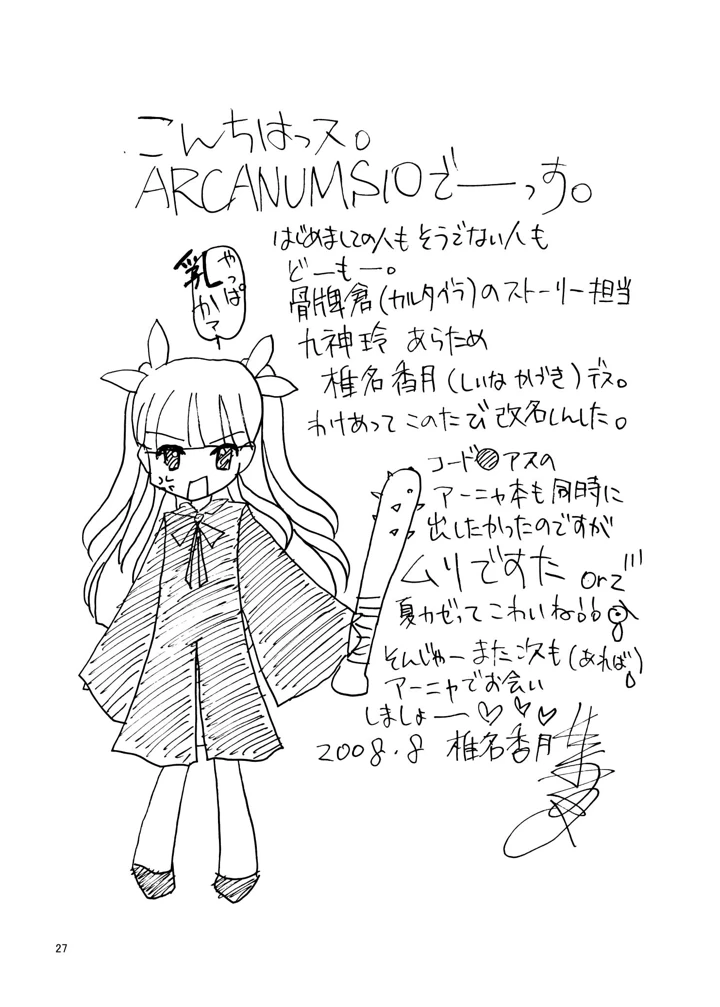 こんちはっス。
ARCANUMS10でーっす。
はじめましての人も そうでない人も
どーもー。
骨牌倉(カルタグラ)のストーリー担当
九神玲 あらため
椎名香月(しいなかげき)デス。
わけあって このたび 改名しんした。
やっぱ
乳
かァ
コード●アスの
アーニャ本も同時に
出したかったのですが
ムリですた orz
夏カゼってこわいね
そんじゃー また次も(あれば)
アーニャでお会い
しましょー♡♡♡
2008.8 椎名香月
27